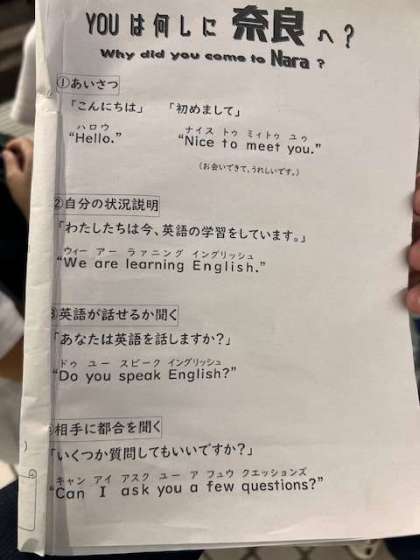 YOUは何しに奈良へ?
Why did you come to Nara ?
①あいさつ
「こんにちは」 「初めまして」
ハロウ ナイス トゥ ミィトゥ ユゥ
“Hello.” “Nice to meet you.”
(お会いできて、うれしいです。)
②自分の状況説明
「わたしたちは今、英語の学習をしています。」
ウィー アー ラァニング イングリッシュ
“We are learning English.”
英語が話せるか聞く
「あなたは英語を話しますか?」
ドゥ ユー スピーク イングリッシュ
“Do you speak English?”
相手に都合を聞く
「いくつか質問してもいいですか?」
キャン アイ アスク ユー ア フュウ クエッションズ
“Can I ask you a few questions?”